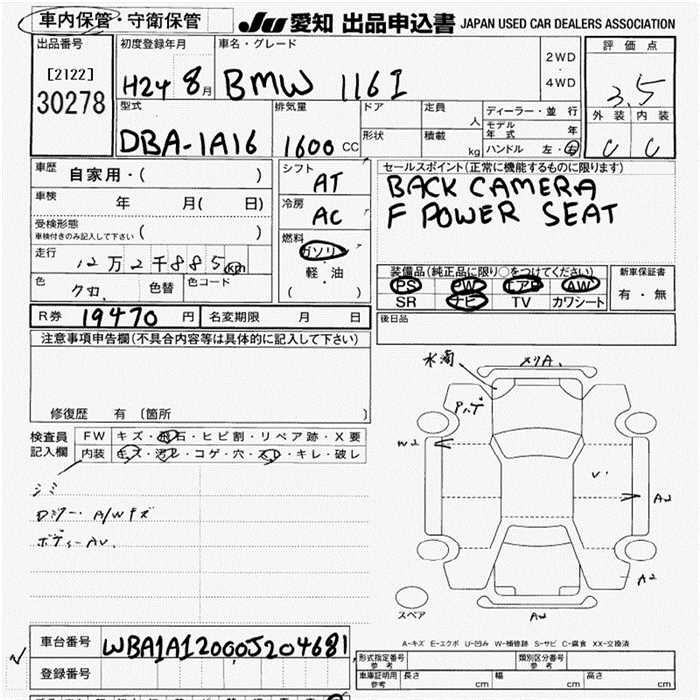 車内保管・守衛保管
JU 愛知 出品申込書 JAPAN USED CAR DEALERS ASSOCIATION
出品番号
[2122]
30278
初度登録年月
H24 8月
車名・グレード
BMW 116I
2WD
・
4WD
評価点
3.5
外装 内装
C C
型式
DBA-1A16
排気量
1600 CC
ドア
形状
定員
人
積載
kg
ディーラー・並行
モデル年式 年
ハンドル 左・右
車歴
自家用・( )
車検
年 月( 日)
受検形態
車検付きのみ記入して下さい ・( )
走行
12万2千885km
色
クロ
色替
色コード
シフト
AT
冷房
AC
燃料
ガソリン
・
軽・油
( )
セールスポイント(正常に機能するものに限ります)
BACK CAMERA
F POWER SEAT
装備品(純正品に限り○をつけてください)
PS PW エアB AW
SR ナビ TV カワシート
新車保証書
有・無
R券 19470 円
名変期限 月 日
後日品
注意事項申告欄(不具合内容等は具体的に記入して下さい)
修復歴 有 〔箇所 〕
検査員
記入欄
FW キズ・飛石・ヒビ割・リペア跡・X要
内装 キズ・汚レ・コゲ・穴・スレ・キレ・破レ
シミ
A/Wキズ
ボディーAU.
水滴
メクリA.
W2
A2
A2
A2
スペア
A-キズ E-エクボ U-凹み W-補修跡 S-サビ C-腐食 XX-交換済
車台番号
WBA1A12000J204681
登録番号
形式指定番号
参考
類別区分番号
参考
車庫証明用
参考
長さ cm 幅 cm 高さ cm